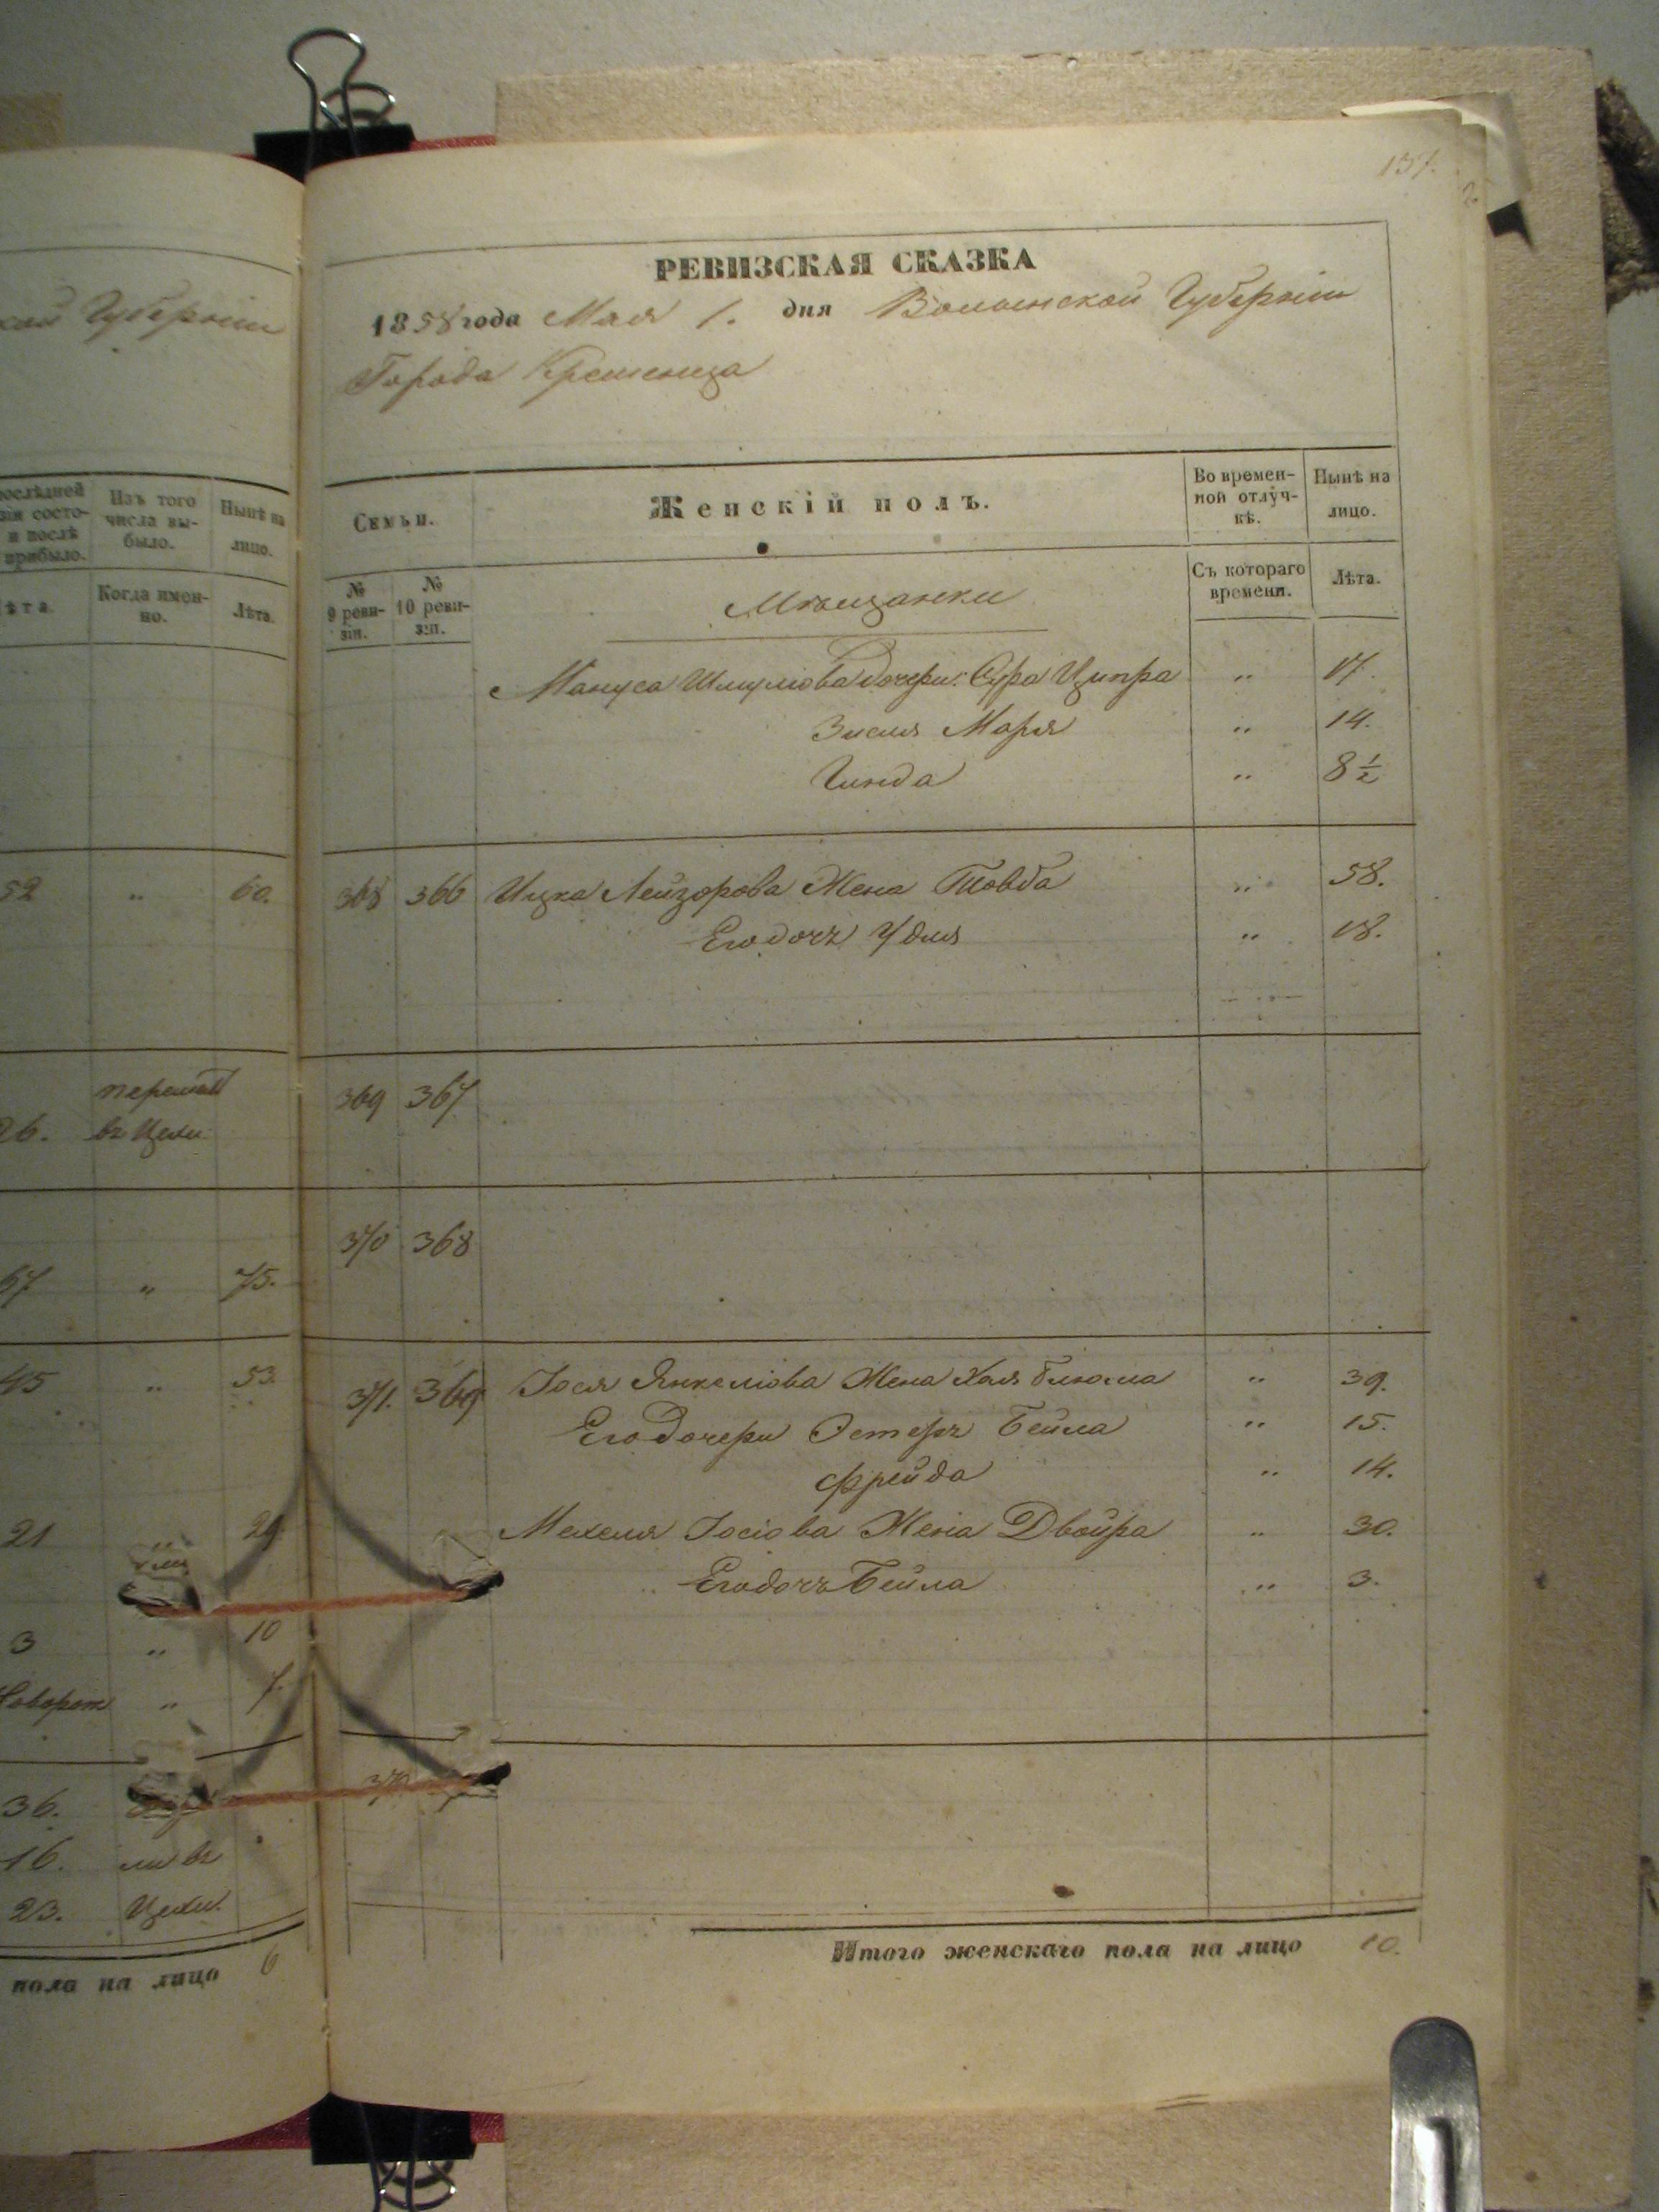 кой Губерніи
послѣдней
зіи состо-
и послѣ
прибыло.
Изъ того
числа вы-
было.
Нынѣ на
лицо.
ѣта.
Когда имен-
но.
Лѣта.
52 " 60.
26.
въ Цехи
67 " 75.
45 " 53.
21
3 " 10
"
36.
16. ли въ
23. Цехи.
пола на лицо 6
137.
РЕВИЗСКАЯ СКАЗКА
1858 года Мая 1. дня Волынской Губерніи
Города Кременца
Семьи.
Женскій полъ.
Во времен-
ной отлуч-
кѣ.
Нынѣ на
лицо.
№
9 реви-
зіи.
№
10 реви-
зіи.
Мѣщанки
Съ котораго
времени.
Лѣта.
Мануса Шмулюва дочери: Сура Ципра " 17.
Зисля Маря " 14.
Гинда " 8 1/2
368 366 Ицка Лейзорова Жена Товба " 58.
Его дочь Удля " 18.
369 367
370 368
371. 369 Іося Янкелюва Жена Хая Блюма " 39.
Его Дочери Эстеръ Бейла " 15.
Фрейда " 14.
Мехеля Іосіова Жена Двойра " 30.
Его дочь Бейла " 3.
Итого женскаго пола на лицо 10.